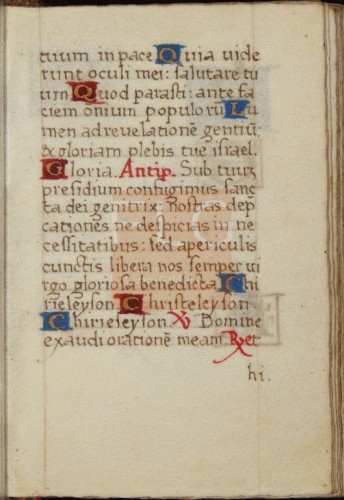 tuum in pace Quia uide
runt oculi mei: salutare tu
um. Quod parasti: ante fa
ciem onium populorũ Lu
men ad reuelationẽ gentiũ:
& gloriam plebis tue israel.
Gloria. Antip. Sub tuuz
presidium confugimus sanc
ta dei genitrix: nostras dep
cationes ne despicias in ne
cessitatibus: sed a periculis
cunctis libera nos semper ui
rgo gloriosa benedicta. Chi
rieleyson. Christeleyson
Chirieleyson. ℣ Domine
exaudi orationẽ meam. ℞ et
hi.